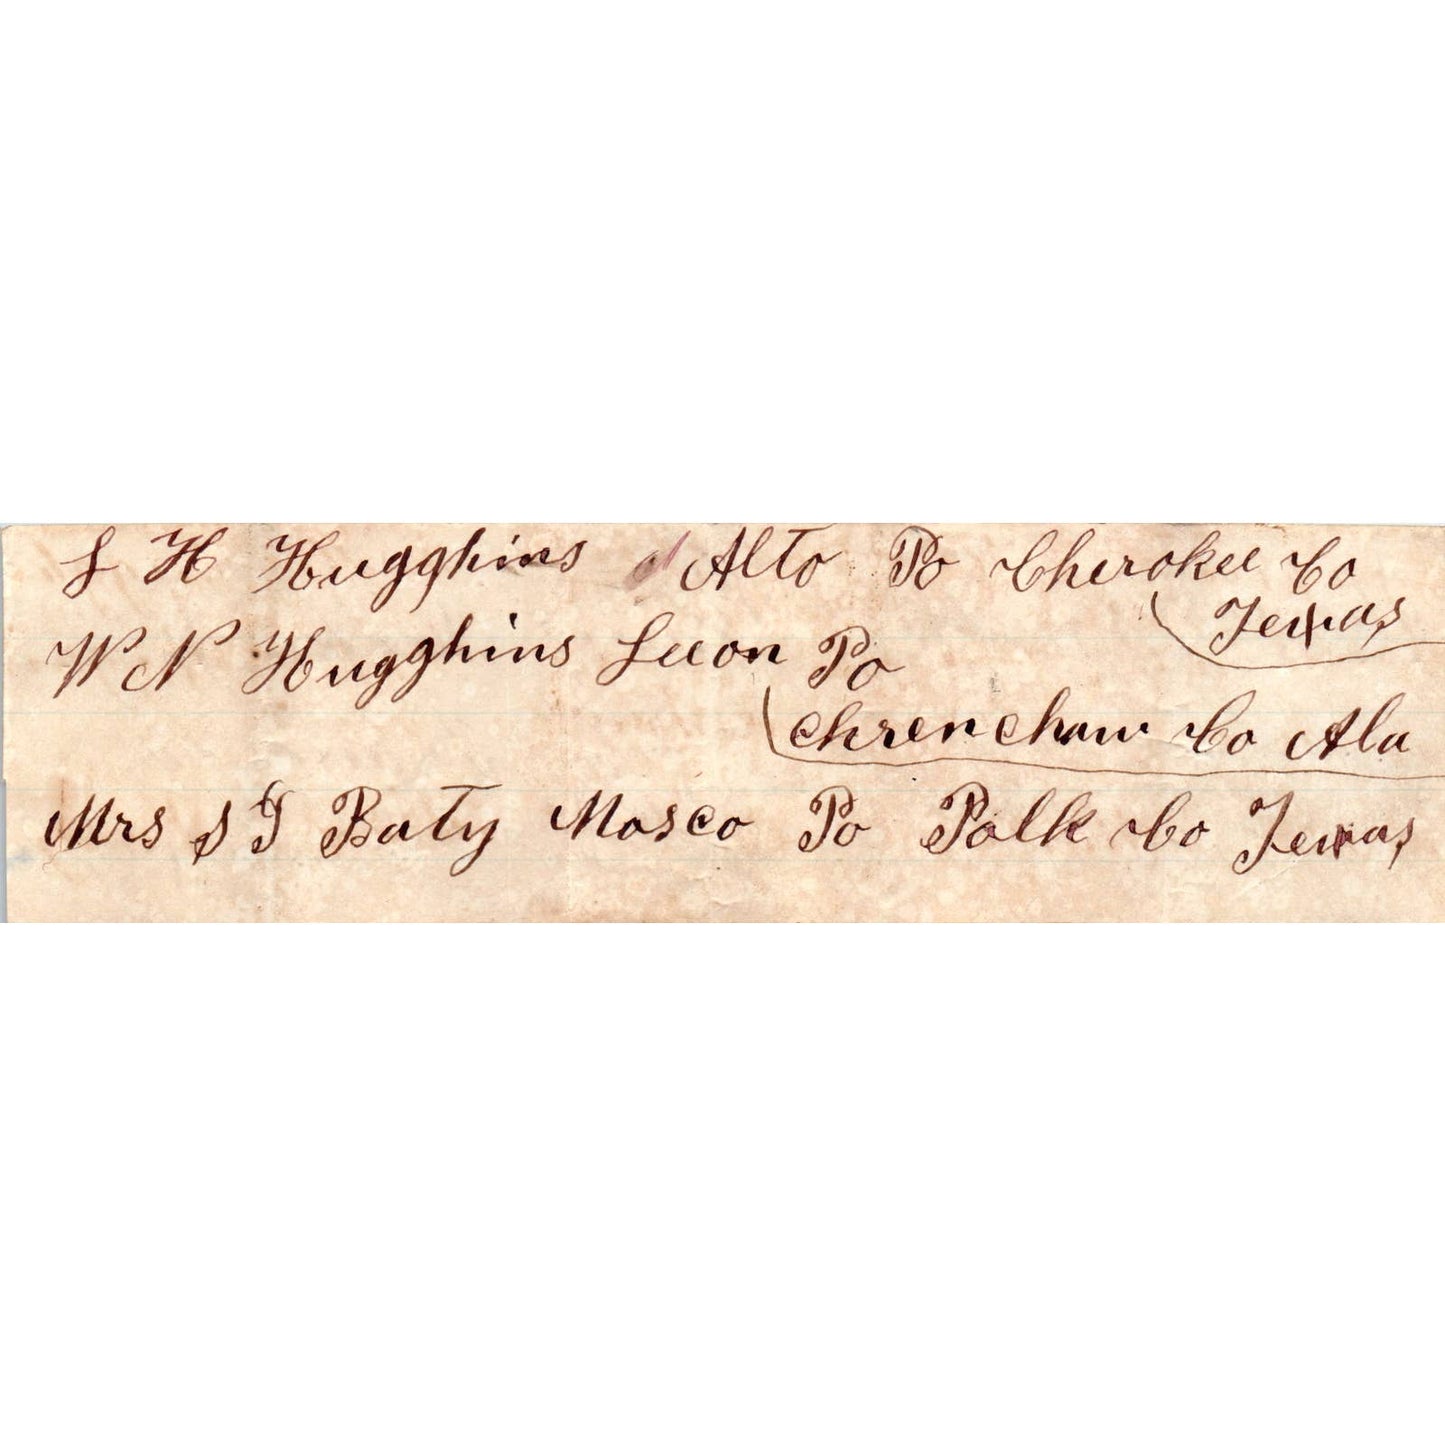 L H Hugghins Alto Po Cherokee Co
Texas
W N Hugghins Leeon Po
Chrenchaw Co Ala
Mrs S J Baty Mosco Po Polk Co Texas